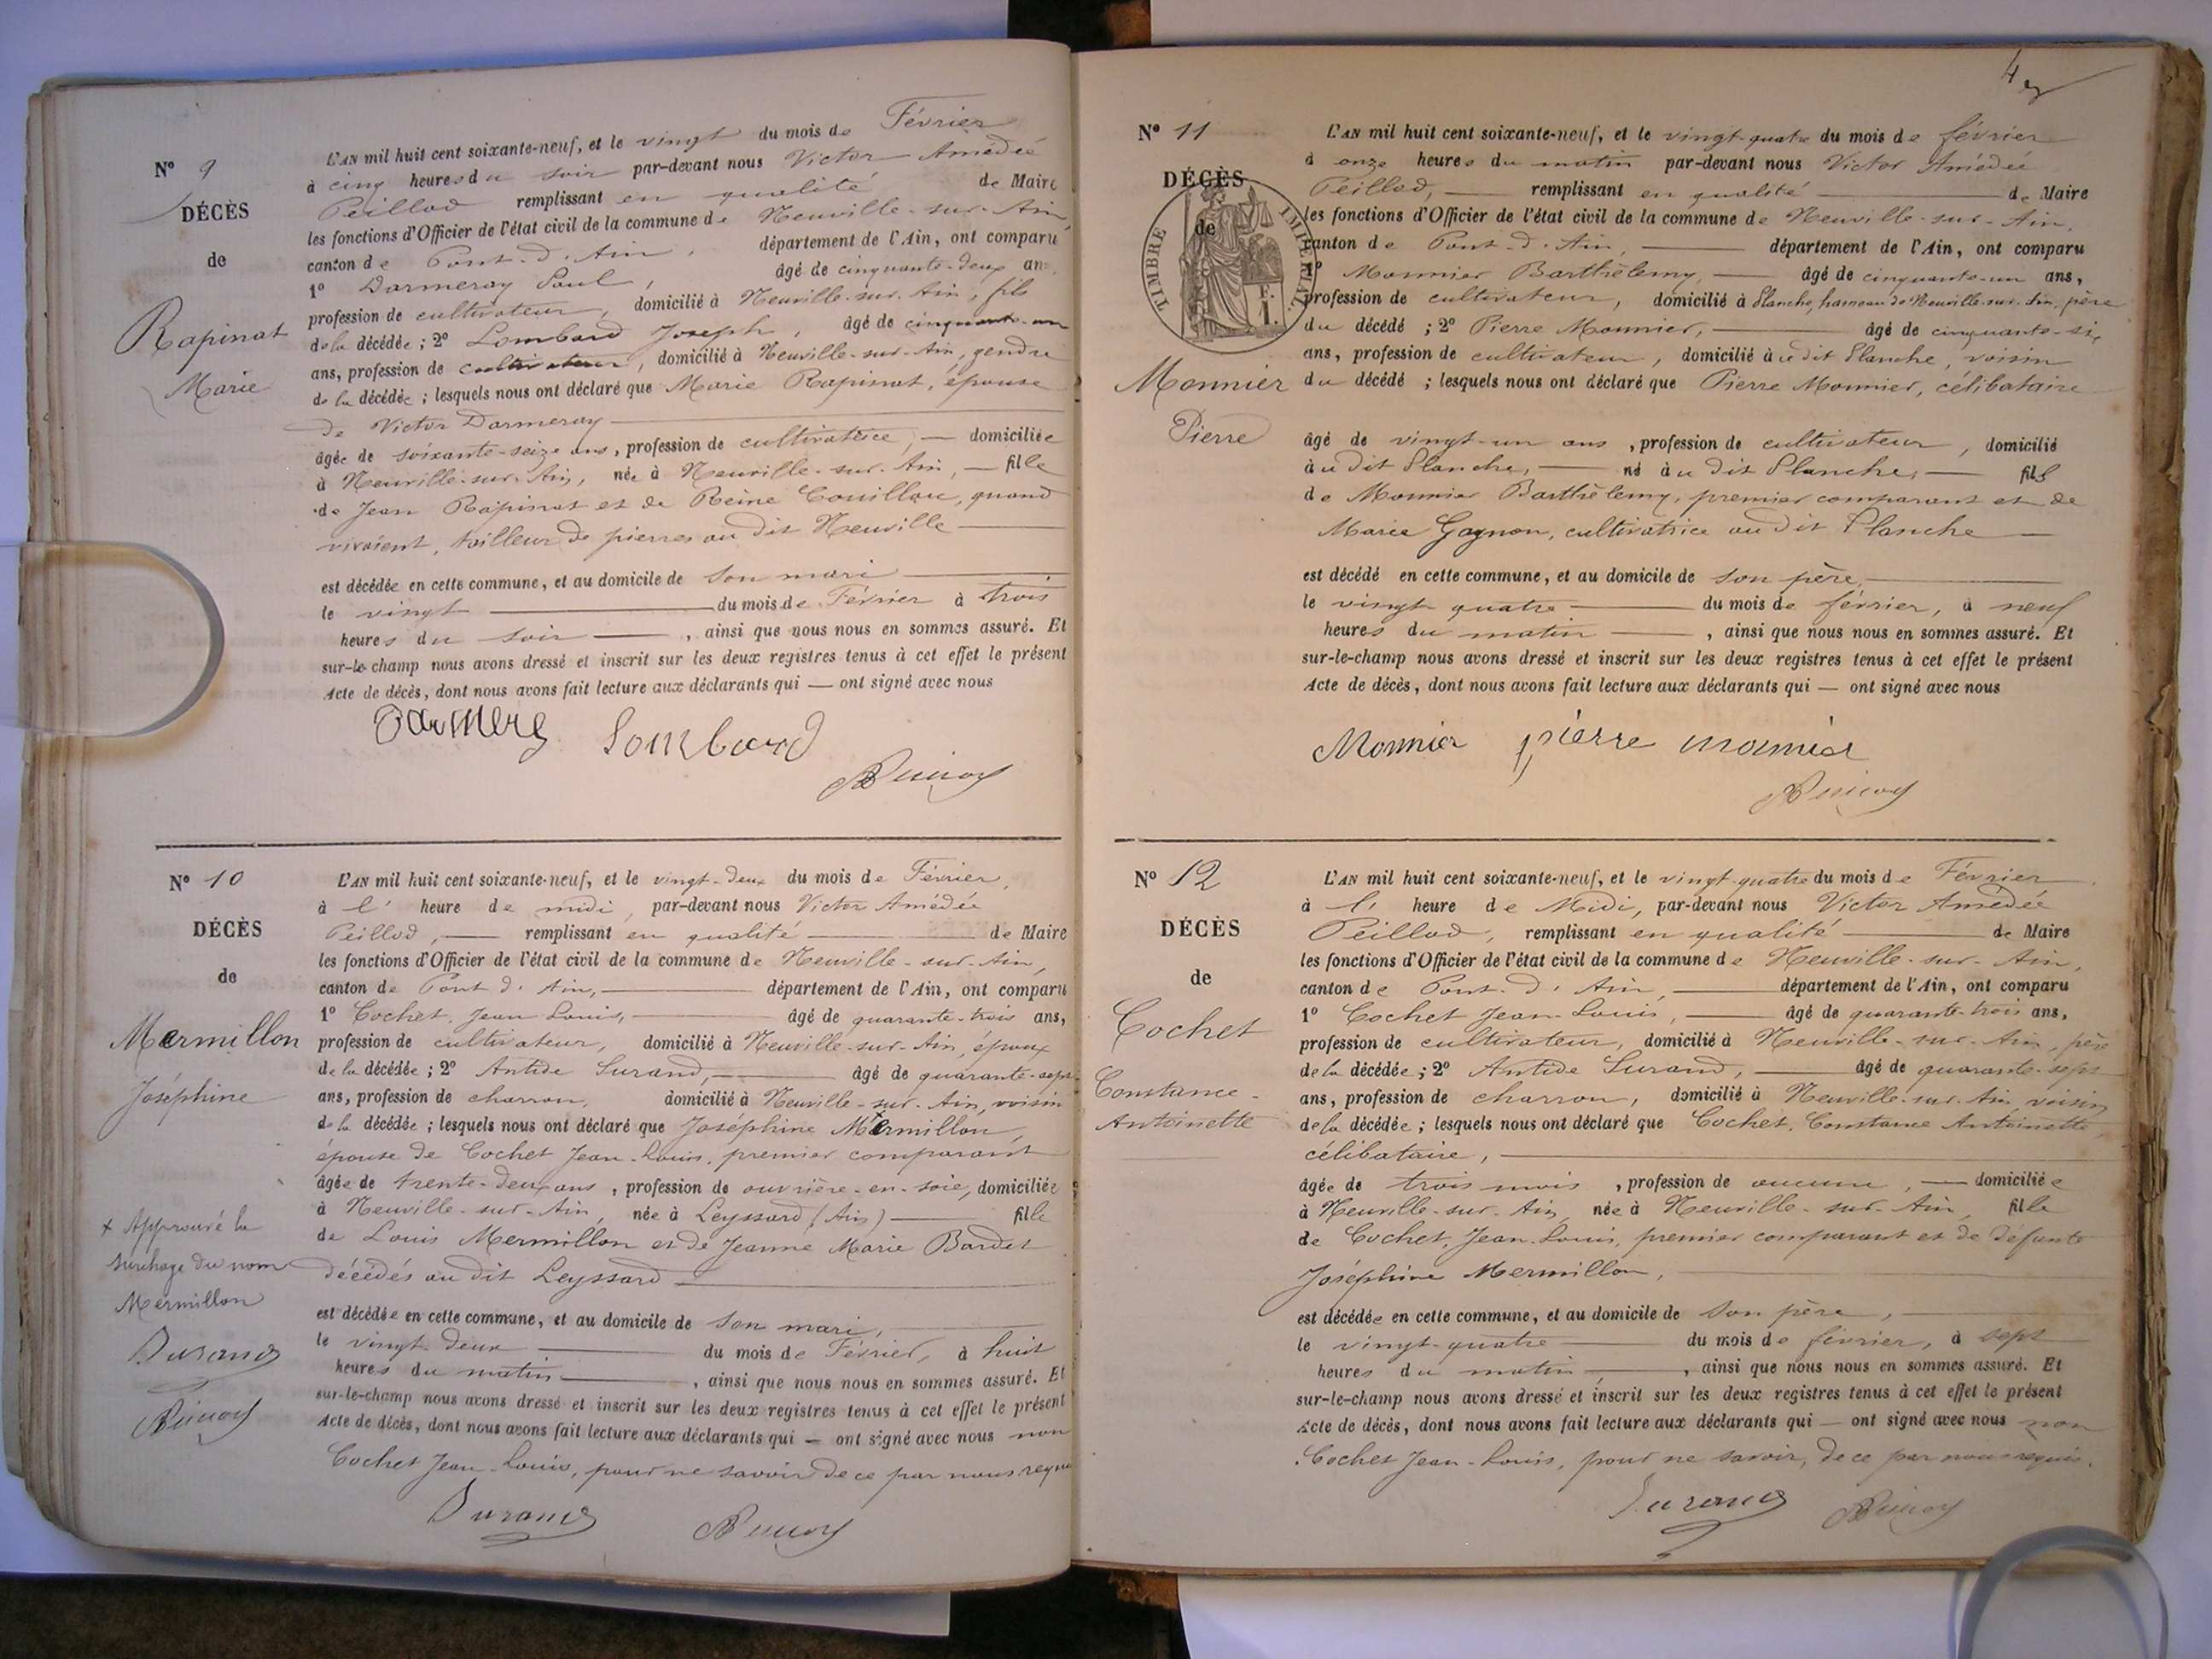 Nº 9
DÉCÈS
de
Rapinat
Marie
L'AN mil huit cent soixante-neuf, et le vingt du mois de Février
à cinq heures du soir par-devant nous Victor Amédée
Peillod remplissant en qualité de Maire
les fonctions d'Officier de l'état civil de la commune de Neuville-sur-Ain,
canton de Pont-d'Ain, département de l'Ain, ont comparu
1º Darmeray Paul, âgé de cinquante-deux ans,
profession de cultivateur, domicilié à Neuville-sur-Ain, fils
de la décédée ; 2º Lombard Joseph, âgé de cinquante-un
ans, profession de cultivateur, domicilié à Neuville-sur-Ain, gendre
de la décédée ; lesquels nous ont déclaré que Marie Rapinat, épouse
de Victor Darmeray
âgée de soixante-seize ans, profession de cultivatrice, domiciliée
à Neuville-sur-Ain, née à Neuville-sur-Ain, fille
de Jean Rapinat et de Reine Couillou, quand
vivaient, tailleur de pierres au dit Neuville
est décédée en cette commune, et au domicile de son mari
le vingt du mois de Février à trois
heures du soir, ainsi que nous nous en sommes assuré. Et
sur-le-champ nous avons dressé et inscrit sur les deux registres tenus à cet effet le présent
Acte de décès, dont nous avons fait lecture aux déclarants qui — ont signé avec nous
Lombard
Nº 10
DÉCÈS
de
Mermillon
Joséphine
+ Approuvé la
surchage du nom
Mermillon
Durand
L'AN mil huit cent soixante-neuf, et le vingt-deux du mois de Février,
à l' heure de midi, par-devant nous Victor Amédée
Peillod, remplissant en qualité de Maire
les fonctions d'Officier de l'état civil de la commune de Neuville-sur-Ain,
canton de Pont d'Ain, département de l'Ain, ont comparu
1º Cochet, Jean Louis, âgé de quarante-trois ans,
profession de cultivateur, domicilié à Neuville-sur-Ain, époux
de la décédée ; 2º Antide Durand, âgé de quarante-sept
ans, profession de charron, domicilié à Neuville-sur-Ain, voisin
de la décédée ; lesquels nous ont déclaré que Joséphine Mermillon,
épouse de Cochet Jean-Louis, premier comparant
âgée de trente-deux ans, profession de ouvrière-en-soie, domiciliée
à Neuville-sur-Ain, née à Leyssard (Ain) fille
de Louis Mermillon et de Jeanne Marie Bardet
décédés au dit Leyssard
est décédée en cette commune, et au domicile de son mari,
le vingt-deux du mois de Février, à huit
heures du matin, ainsi que nous nous en sommes assuré. Et
sur-le-champ nous avons dressé et inscrit sur les deux registres tenus à cet effet le présent
Acte de décès, dont nous avons fait lecture aux déclarants qui — ont signé avec nous non
Cochet Jean-Louis, pour ne savoir de ce par nous requis
Durand
Nº 11
DÉCÈS
de
TIMBRE IMPÉRIAL
Monnier
Pierre
L'AN mil huit cent soixante-neuf, et le vingt-quatre du mois de février
à onze heures du matin par-devant nous Victor Amédée
Peillod, remplissant en qualité de Maire
les fonctions d'Officier de l'état civil de la commune de Neuville-sur-Ain,
canton de Pont-d'Ain, département de l'Ain, ont comparu
1º Monnier Barthélemy, âgé de cinquante-un ans,
profession de cultivateur, domicilié à Planche, hameau de Neuville-sur-Ain, père
du décédé ; 2º Pierre Monnier, âgé de cinquante-six
ans, profession de cultivateur, domicilié au dit Planche, voisin
du décédé ; lesquels nous ont déclaré que Pierre Monnier, célibataire
âgé de vingt-un ans, profession de cultivateur, domicilié
au dit Planche, né au dit Planche, fils
de Monnier Barthélemy, premier comparant et de
Marie Gagnon, cultivatrice au dit Planche
est décédé en cette commune, et au domicile de son père,
le vingt-quatre du mois de février, à neuf
heures du matin, ainsi que nous nous en sommes assuré. Et
sur-le-champ nous avons dressé et inscrit sur les deux registres tenus à cet effet le présent
Acte de décès, dont nous avons fait lecture aux déclarants qui — ont signé avec nous
Monnier pierre monnier
Nº 12
DÉCÈS
de
Cochet
Constance-
Antoinette
L'AN mil huit cent soixante-neuf, et le vingt-quatre du mois de Février
à l' heure de Midi, par-devant nous Victor Amédée
Peillod, remplissant en qualité de Maire
les fonctions d'Officier de l'état civil de la commune de Neuville-sur-Ain,
canton de Pont-d'Ain, département de l'Ain, ont comparu
1º Cochet Jean-Louis, âgé de quarante-trois ans,
profession de cultivateur, domicilié à Neuville-sur-Ain, père
de la décédée ; 2º Antide Durand, âgé de quarante-sept
ans, profession de charron, domicilié à Neuville-sur-Ain voisin
de la décédée ; lesquels nous ont déclaré que Cochet, Constance Antoinette,
célibataire,
âgée de trois mois, profession de aucune, domiciliée
à Neuville-sur-Ain née à Neuville-sur-Ain, fille
de Cochet, Jean-Louis, premier comparant et de défunte
Joséphine Mermillon,
est décédée en cette commune, et au domicile de son père,
le vingt-quatre du mois de février, à sept
heures du matin, ainsi que nous nous en sommes assuré. Et
sur-le-champ nous avons dressé et inscrit sur les deux registres tenus à cet effet le présent
Acte de décès, dont nous avons fait lecture aux déclarants qui — ont signé avec nous non
Cochet Jean-Louis, pour ne savoir, de ce par nous requis.
Durand